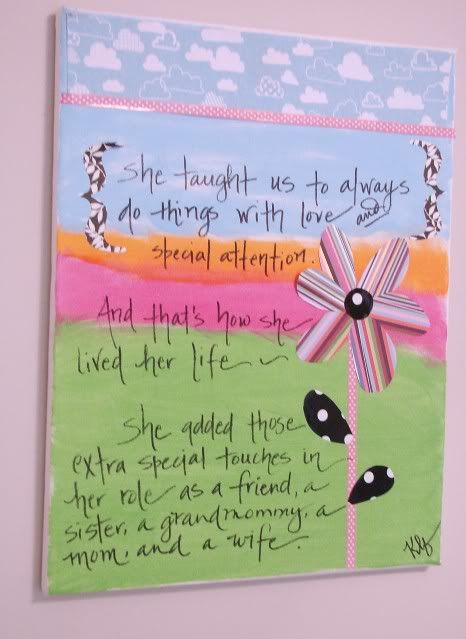 she taught us to always
do things with love and
special attention.
And that's how she
lived her life
she added those
extra special touches in
her role as a friend, a
sister, a grandmommy, a
mom, and a wife.